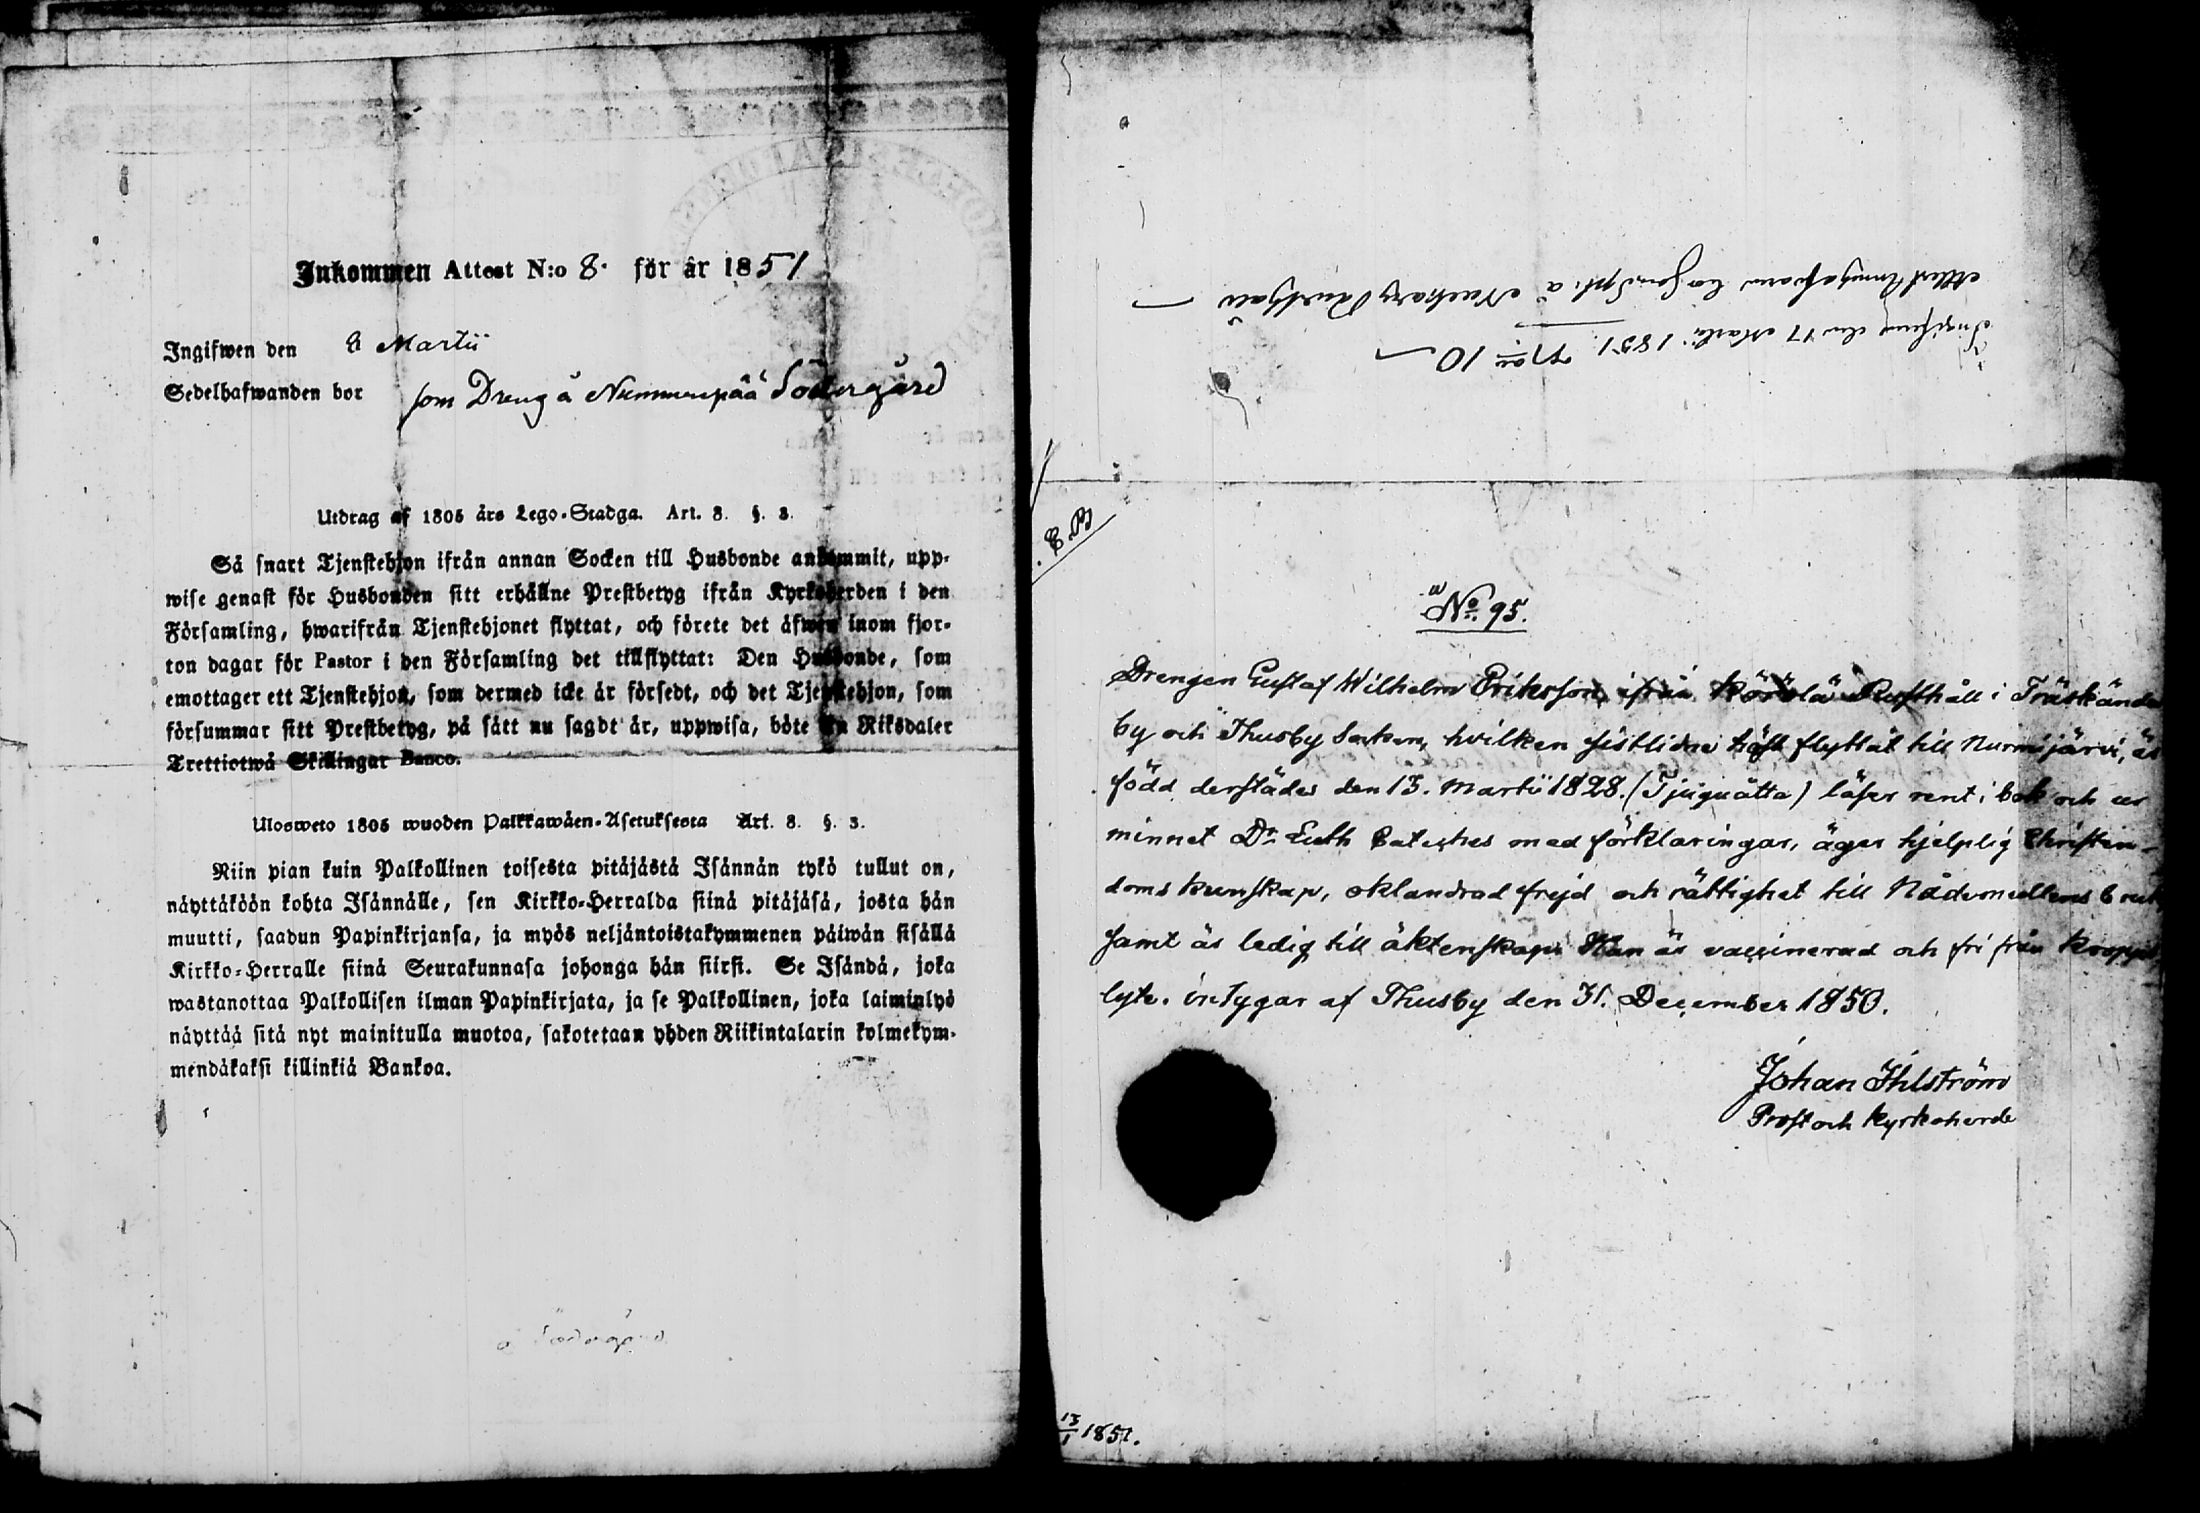 Inkommen Attest N:o 8. för år 1851
Ingifwen den 8 Martii
Sedelhafwanden bor som Dreng å Nummenpää Södergård
Utdrag af 1805 års Lego-Stadga. Art. 8. §. 3.
Så snart Tjenstehjon ifrån annan Socken till Husbonde ankommit, upp-
wise genast för Husbonden sitt erhållne Prestbetyg ifrån Kyrkoherden i den
Församling, hwarifrån Tjenstehjonet flyttat, och förete det äfwen inom fjor-
ton dagar för Pastor i den Församling det tillflyttat: Den Husbonde, som
emottager ett Tjenstehjon, som dermed icke är försedt, och det Tjenstehjon, som
försummar sitt Prestbetyg, på sätt nu sagdt är, uppwisa, böte en Riksdaler
Trettiotwå Skillingar Banco.
Ulosweto 1805 wuoden Palkkawäen-Asetuksesta Art. 8. §. 3.
Niin pian kuin Palkollinen toisesta pitäjästä Isännän tykö tullut on,
näyttäköön kohta Isännälle, sen Kirkko-Herralda siinä pitäjäsä, josta hän
muutti, saadun Papinkirjansa, ja myös neljäntoistakymmenen päiwän sisällä
Kirkko-Herralle siinä Seurakunnasa johonga hän siirsi. Se Isändä, joka
wastanottaa Palkollisen ilman Papinkirjata, ja se Palkollinen, joka laiminlyö
näyttää sitä nyt mainitulla muotoa, sakotetaan yhden Riikintalarin kolmekym-
mendäkaksi killinkiä Bankoa.
å Södergård
Ingifven den 17 Martii 1851. N:o 10
E.B.
N:o 95.
Drengen Gustaf Wilhelm Eriksson ifrån Körölä Rusthåll i Träskända
by och Thusby Socken, hvilken sistlidne höst flyttat till Nurmijärvi, är
född derstädes den 13. Martii 1828. (Tjuguåtta) läser rent i bok och ur
minnet Dr Luth Cateches med förklaringar, äger hjelplig Christen-
doms kunskap, oklandrad frejd och rättighet till Nådemedlens bruk,
samt är ledig till äktenskap. Han är vaccinerad och fri från kropps
lyte. intygar af Thusby den 31. December 1850.
Johan Ihlström
Prost och Kyrkoherde
13/1 1851.